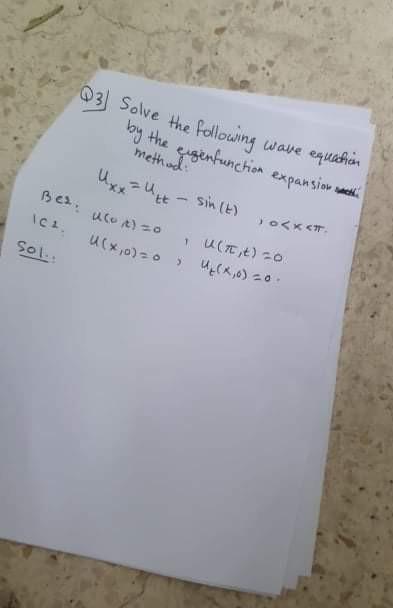 Q3| Solve the following wave equation
by the eigenfunction expansion
method:
Uxx = Utt - sin(t) , 0<x<π.
BCs: u(0,t)=0 , u(π,t)=0
ICs: u(x,0)=0 , ut(x,0)=0.
Sol.: